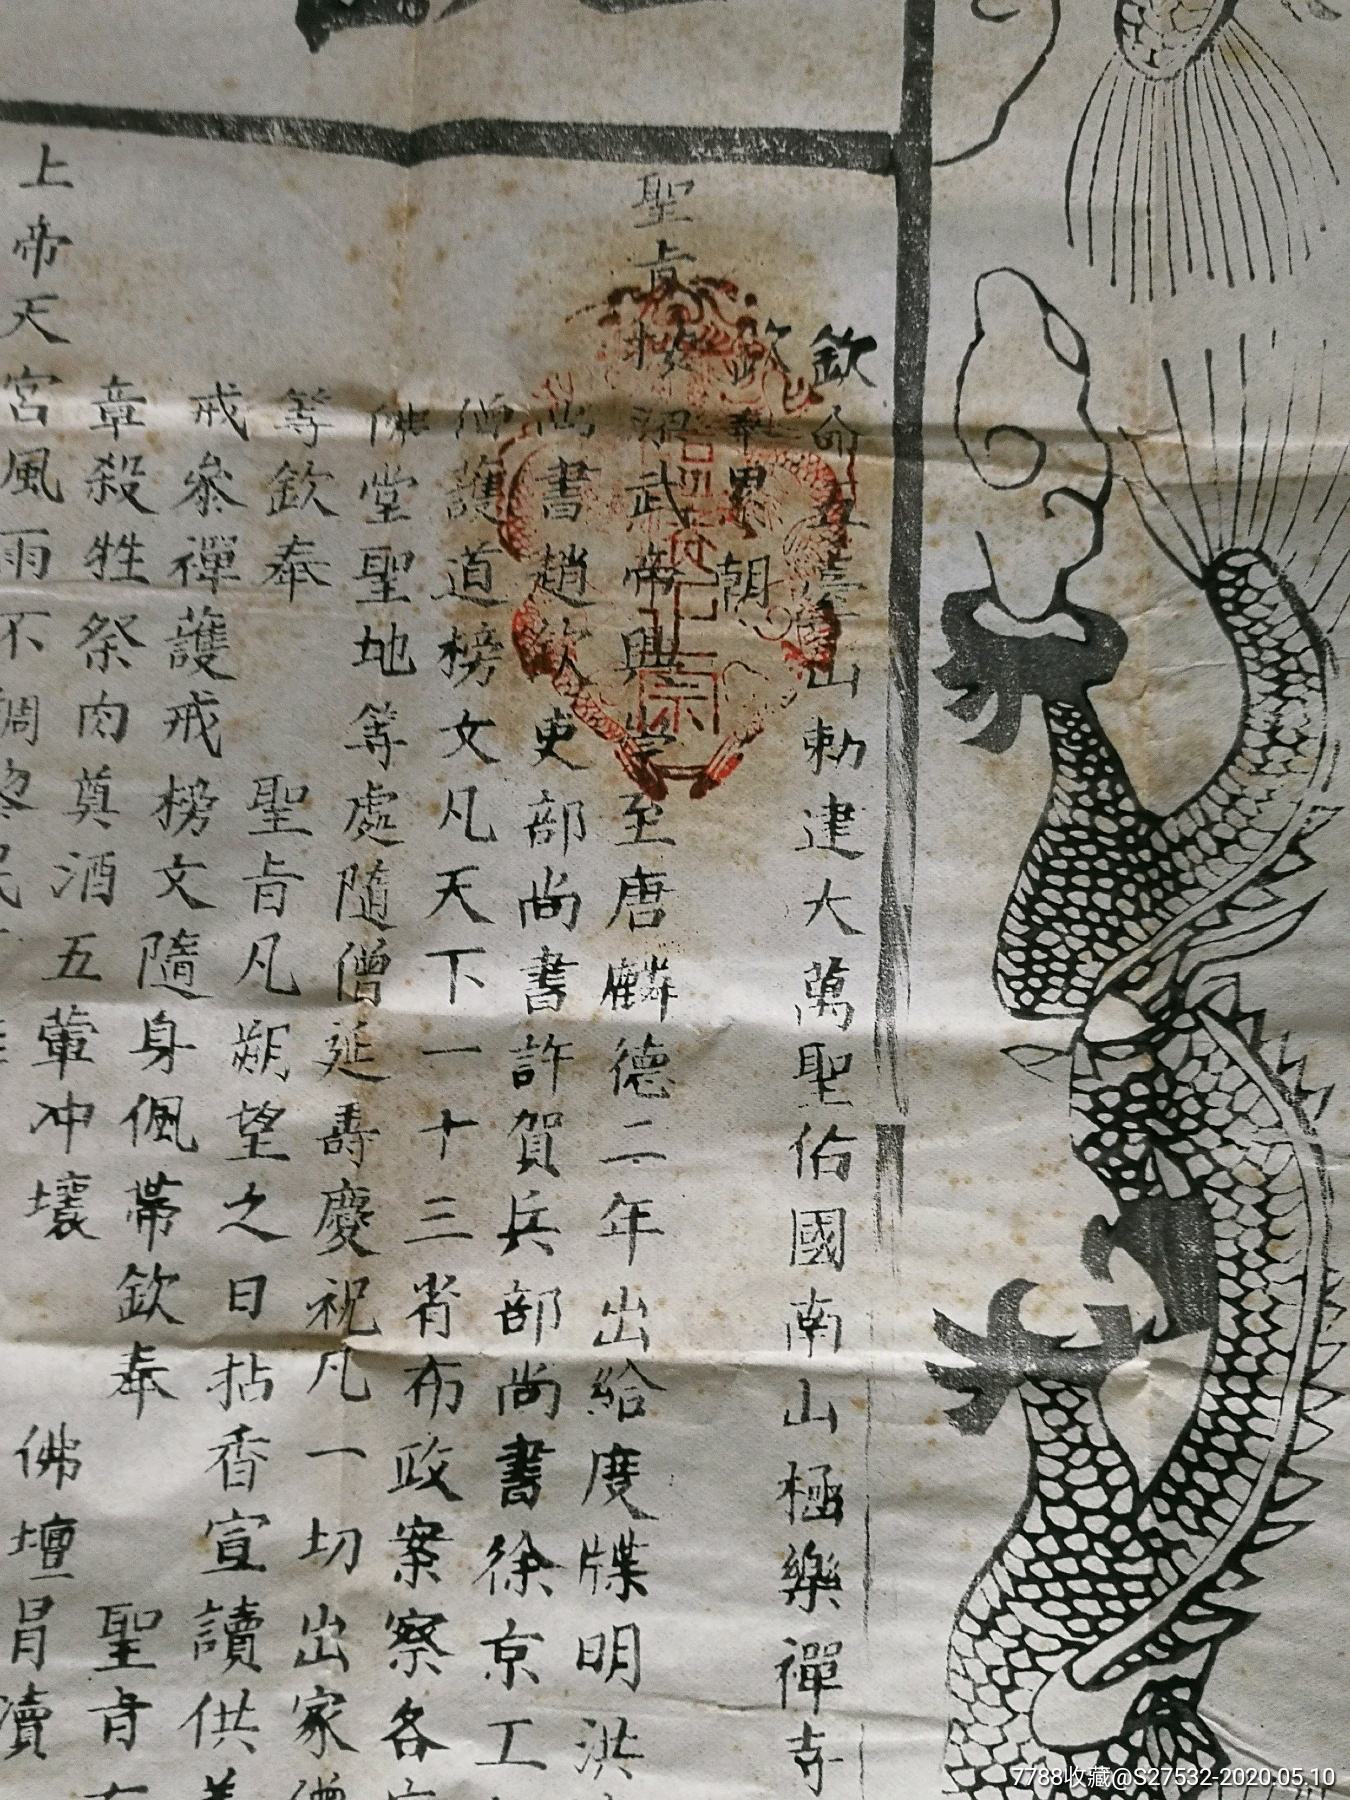 欽命五臺山勅建大萬聖佑國南山極樂禪寺
欽奉累朝
聖旨梁武帝興崇至唐麟德二年出給度牒明洪
尚書趙欽吏部尚書許賀兵部尚書徐京工
僧護道榜文凡天下一十三省布政案察各
佛堂聖地等處隨僧延壽慶祝凡一切出家僧
等欽奉 聖旨凡朔望之日拈香宣讀供養
戒叅禪護戒榜文隨身佩帶欽奉 聖旨
章殺牲祭肉奠酒五葷冲壞 佛壇冒瀆
上帝天宮風雨不調黎民
7788收藏@S27532-2020.05.10